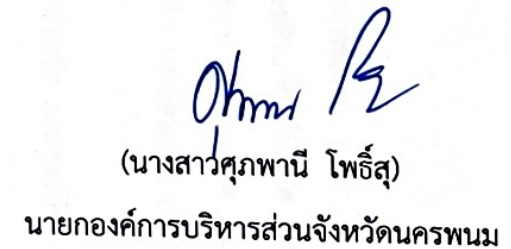 (นางสาวศุภพานี โพธิ์สุ)
นายกองค์การบริหารส่วนจังหวัดนครพนม